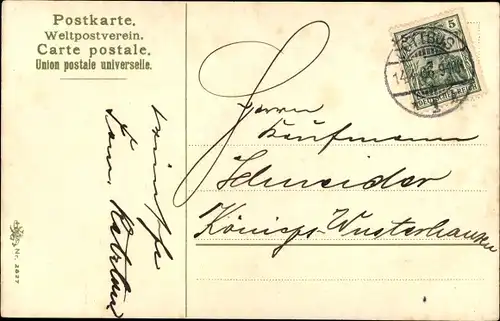 Postkarte.
Weltpostverein.
Carte postale.
Union postale universelle.
5
COTTBUS
DEUTSCHES REICH
Herrn
Kaufmann
Schneider
Königs-Wusterhausen
wünscht
Fam.
Nr. 2627